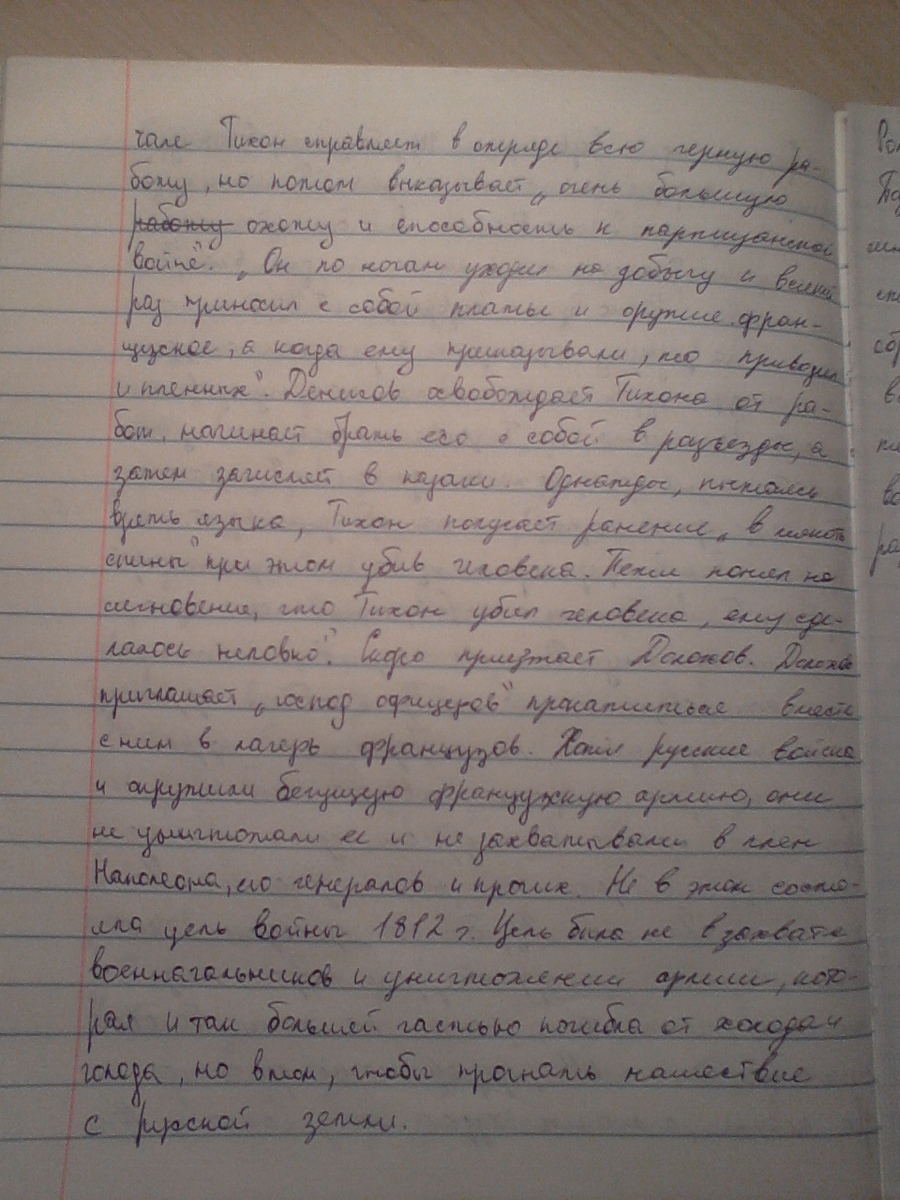 чале Тихон справляет в отряде всю черную ра-
боту, но потом выказывает „очень большую
работу охоту и способность к партизанской
войне". „Он по ночам уходил на добычу и всякий
раз приносил с собой платье и оружие фран-
цузское, а когда ему приказывали, то приводил
и пленных". Денисов освобождает Тихона от ра-
бот, начинает брать его с собой в разъезды, а
затем зачисляет в казаки. Однажды, пытаясь
взять языка, Тихон получает ранение „в мякоть
спины" при этом убив человека. Петя понял на
мгновение, что Тихон убил человека, ему сде-
лалось неловко". Скоро приезжает Долохов. Долохов
приглашает „господ офицеров" прокатиться вместе
с ним в лагерь французов. Хотя русские войска
и окружили бегущую французскую армию, они
не уничтожали ее и не захватывали в плен
Наполеона, его генералов и прочих. Не в этом состо-
яла цель войны 1812 г. Цель была не в захвате
военначальников и уничтожении армии, кото-
рая и так большей частью погибла от холода и
голода, но в том, чтобы прогнать нашествие
с русской земли.
Ро